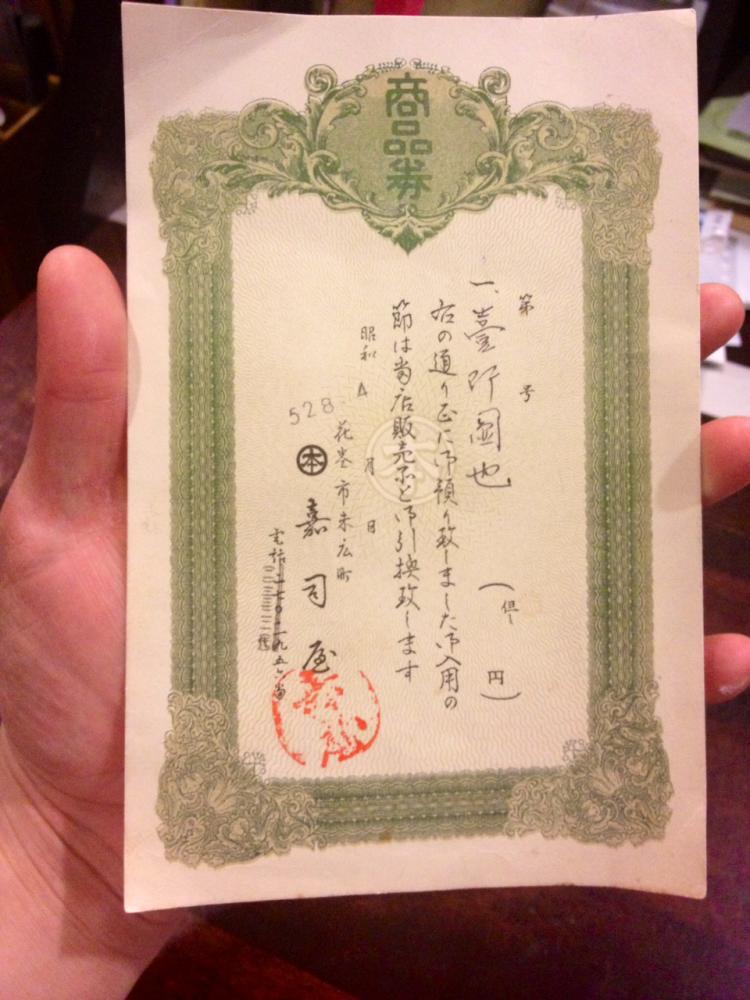 商品券
第 号
一、壹阡圓也
(但し 円)
右の通り正に御預り致しました御入用の
節は当店販売品と御引換致します
昭和 年 月 日
528
花巻市末広町
本 嘉司屋
電話
本